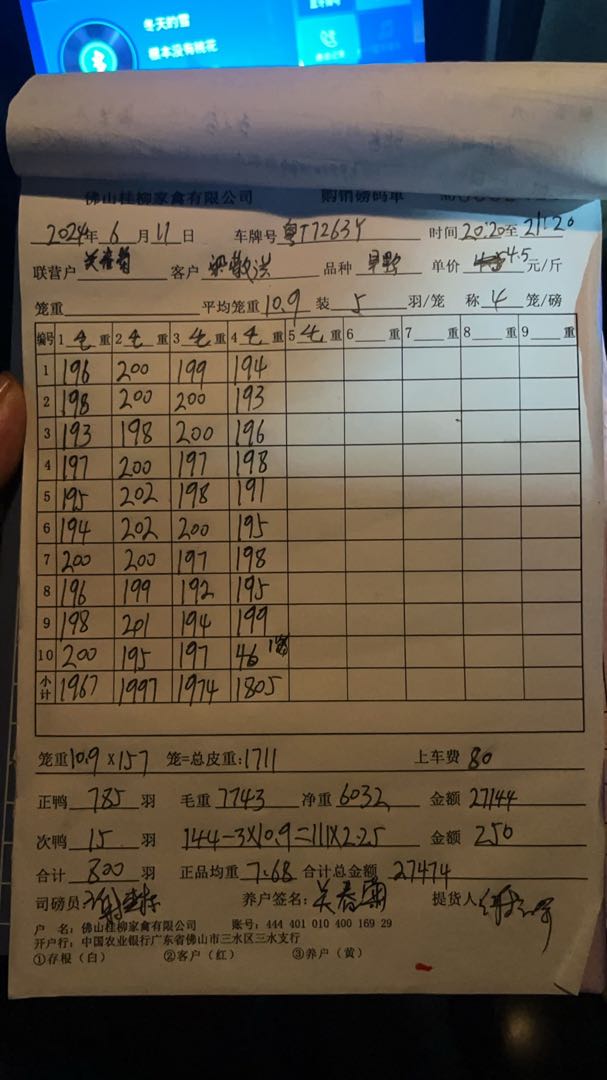 冬天的雪
根本没有桃花
佛山桂柳家禽有限公司 购销磅码单
2024年 6月11日 车牌号 粤T72634 时间 20:20至21:20
联营户 客户 品种 早鸭 单价 4.5 元/斤
笼重 平均笼重 10.9 装 5 羽/笼 称 4 笼/磅
编号 1 毛 重 2 毛 重 3 毛 重 4 毛 重 5 毛 重 6 重 7 重 8 重 9 重
1 196 200 199 194
2 198 200 200 193
3 193 198 200 196
4 197 200 197 198
5 195 202 198 191
6 194 202 200 195
7 200 200 197 198
8 196 199 192 195
9 198 201 194 199
10 200 195 197 46 1笼
小计 1967 1997 1974 1805
笼重 10.9×157 笼=总皮重: 1711 上车费 80
正鸭 785 羽 毛重 7743 净重 6032 金额 27144
次鸭 15 羽 144-3×10.9=111×2.25 金额 250
合计 800 羽 正品均重 7.68 合计总金额 27474
司磅员 养户签名: 提货人
户 名: 佛山桂柳家禽有限公司 账号: 444 401 010 400 169 29
开户行: 中国农业银行广东省佛山市三水区三水支行
①存根（白） ②客户（红） ③养户（黄）